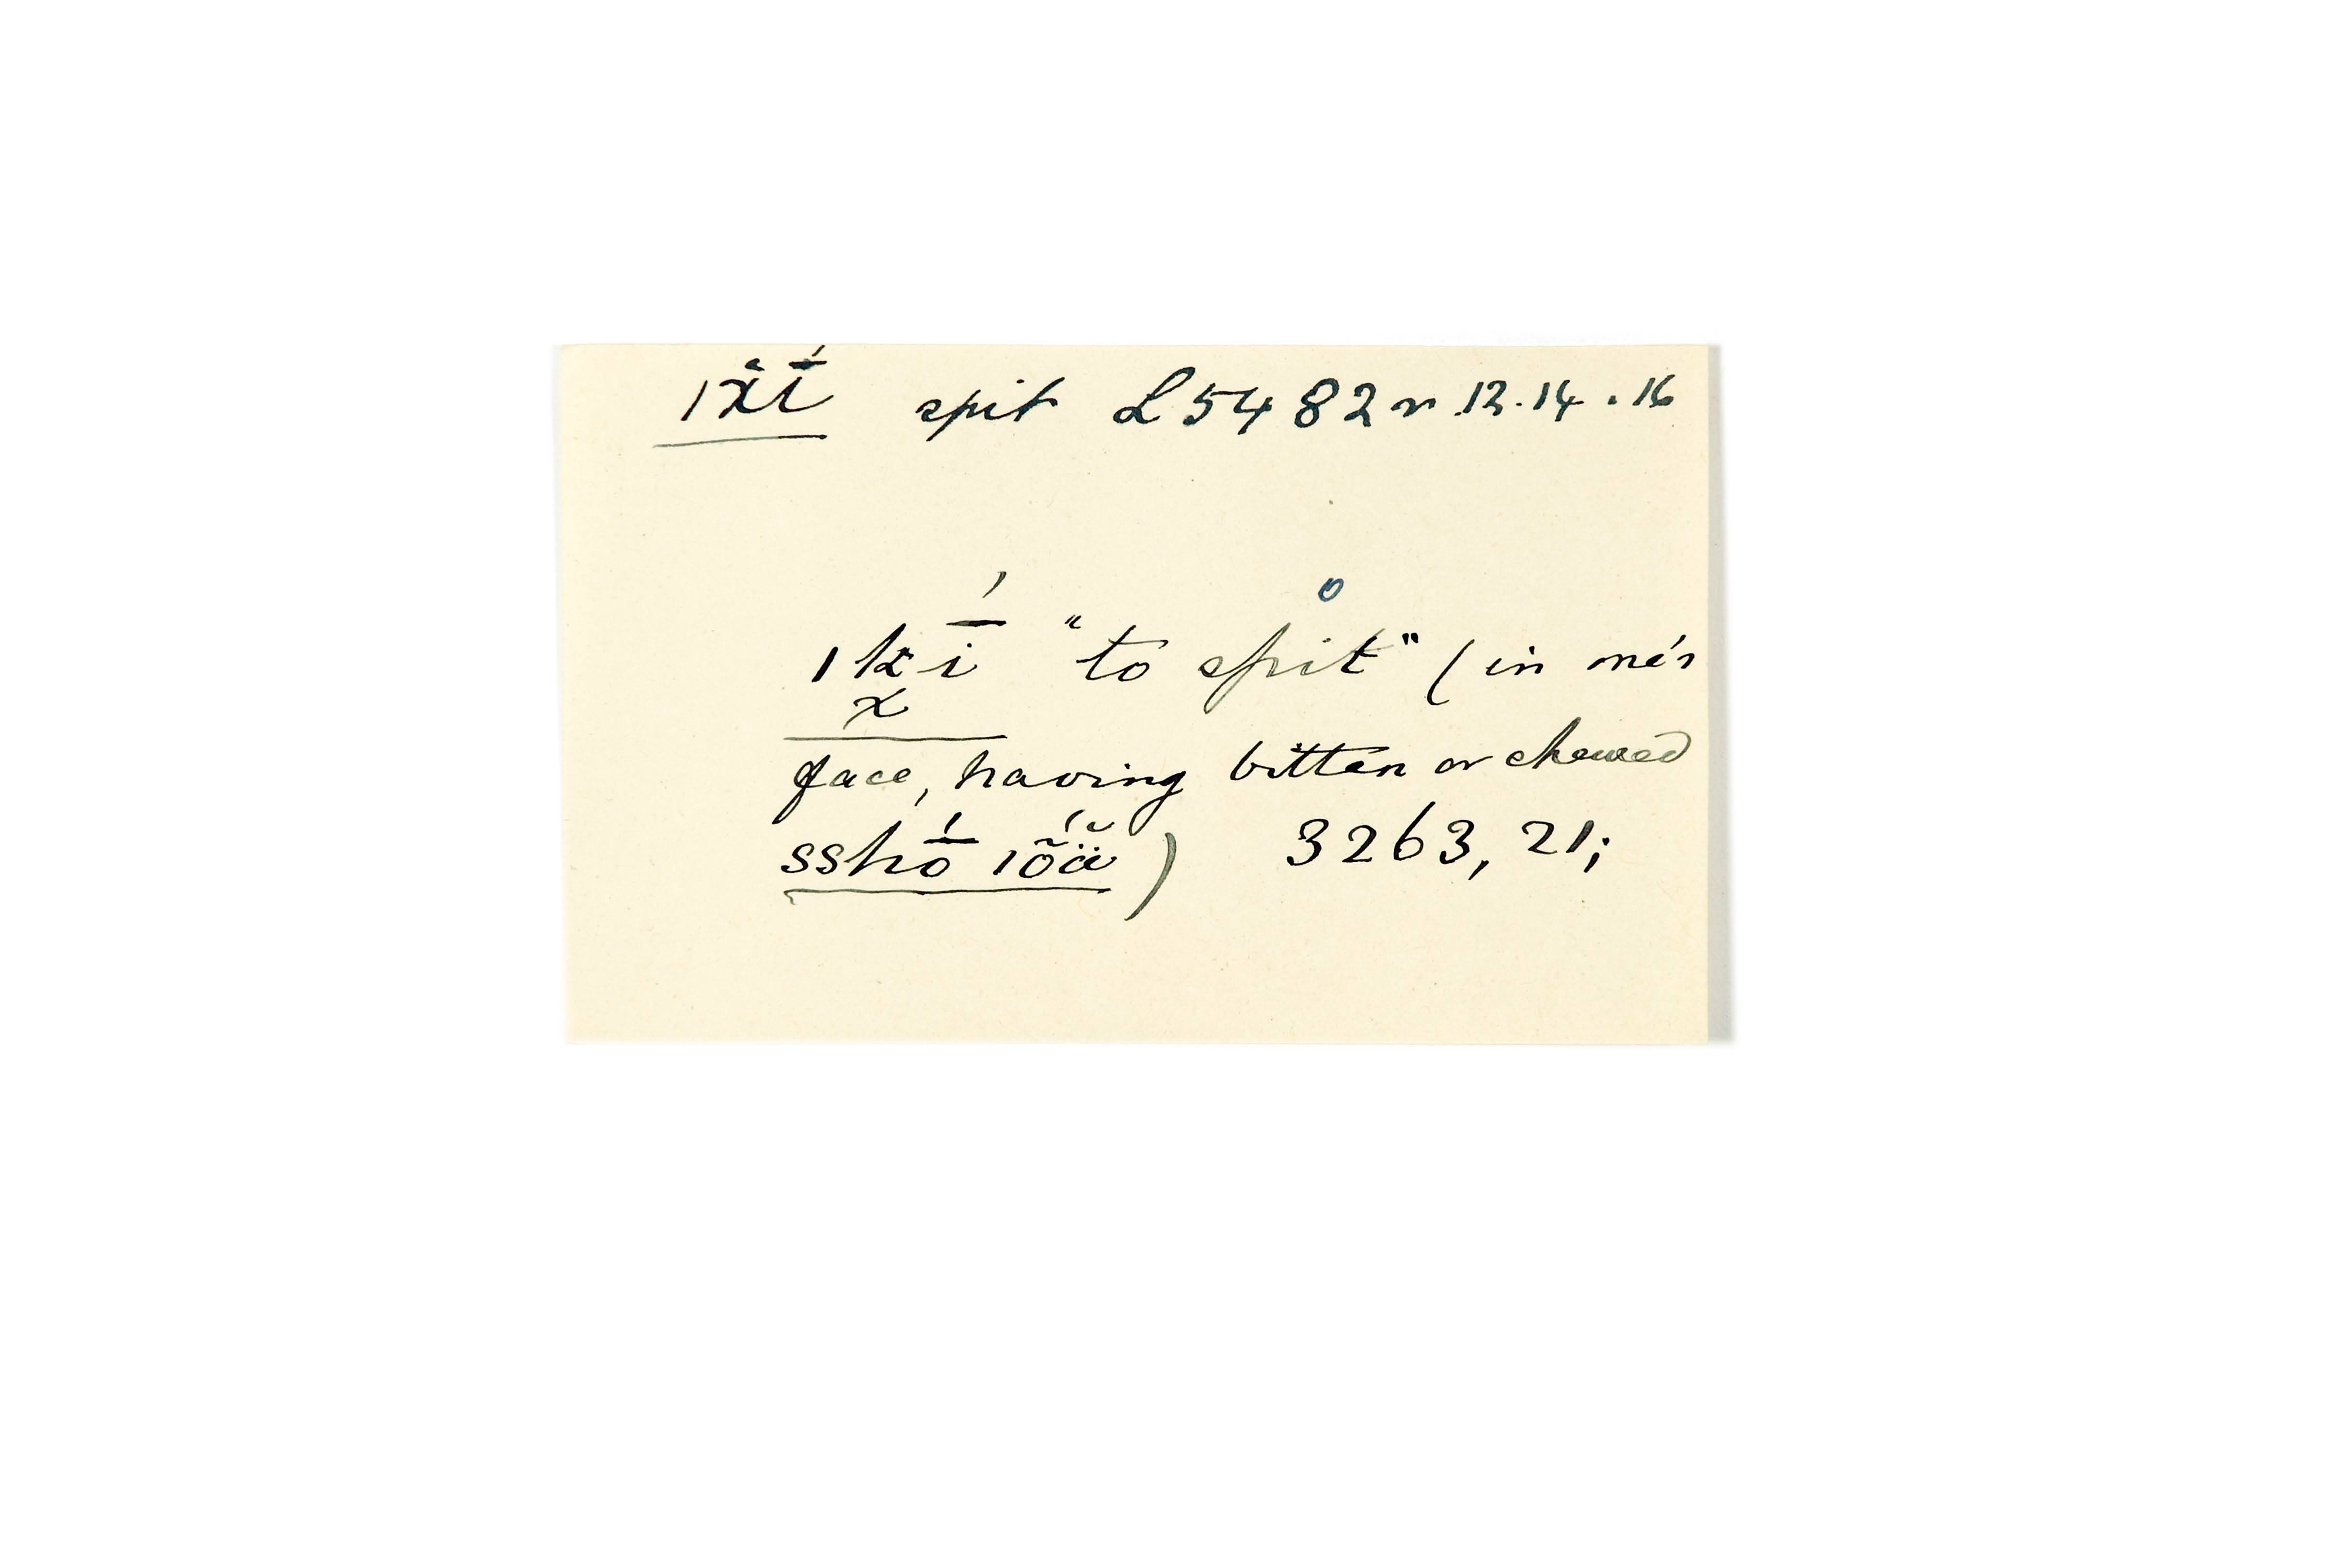 ıẋī́ spit L5482 r .12.14 . 16
o
ık̲ī́ "to spit" ( in mén
x
face, having bitten or chewed
sshṓ ıõ̋ä̆ ) 3263, 21;